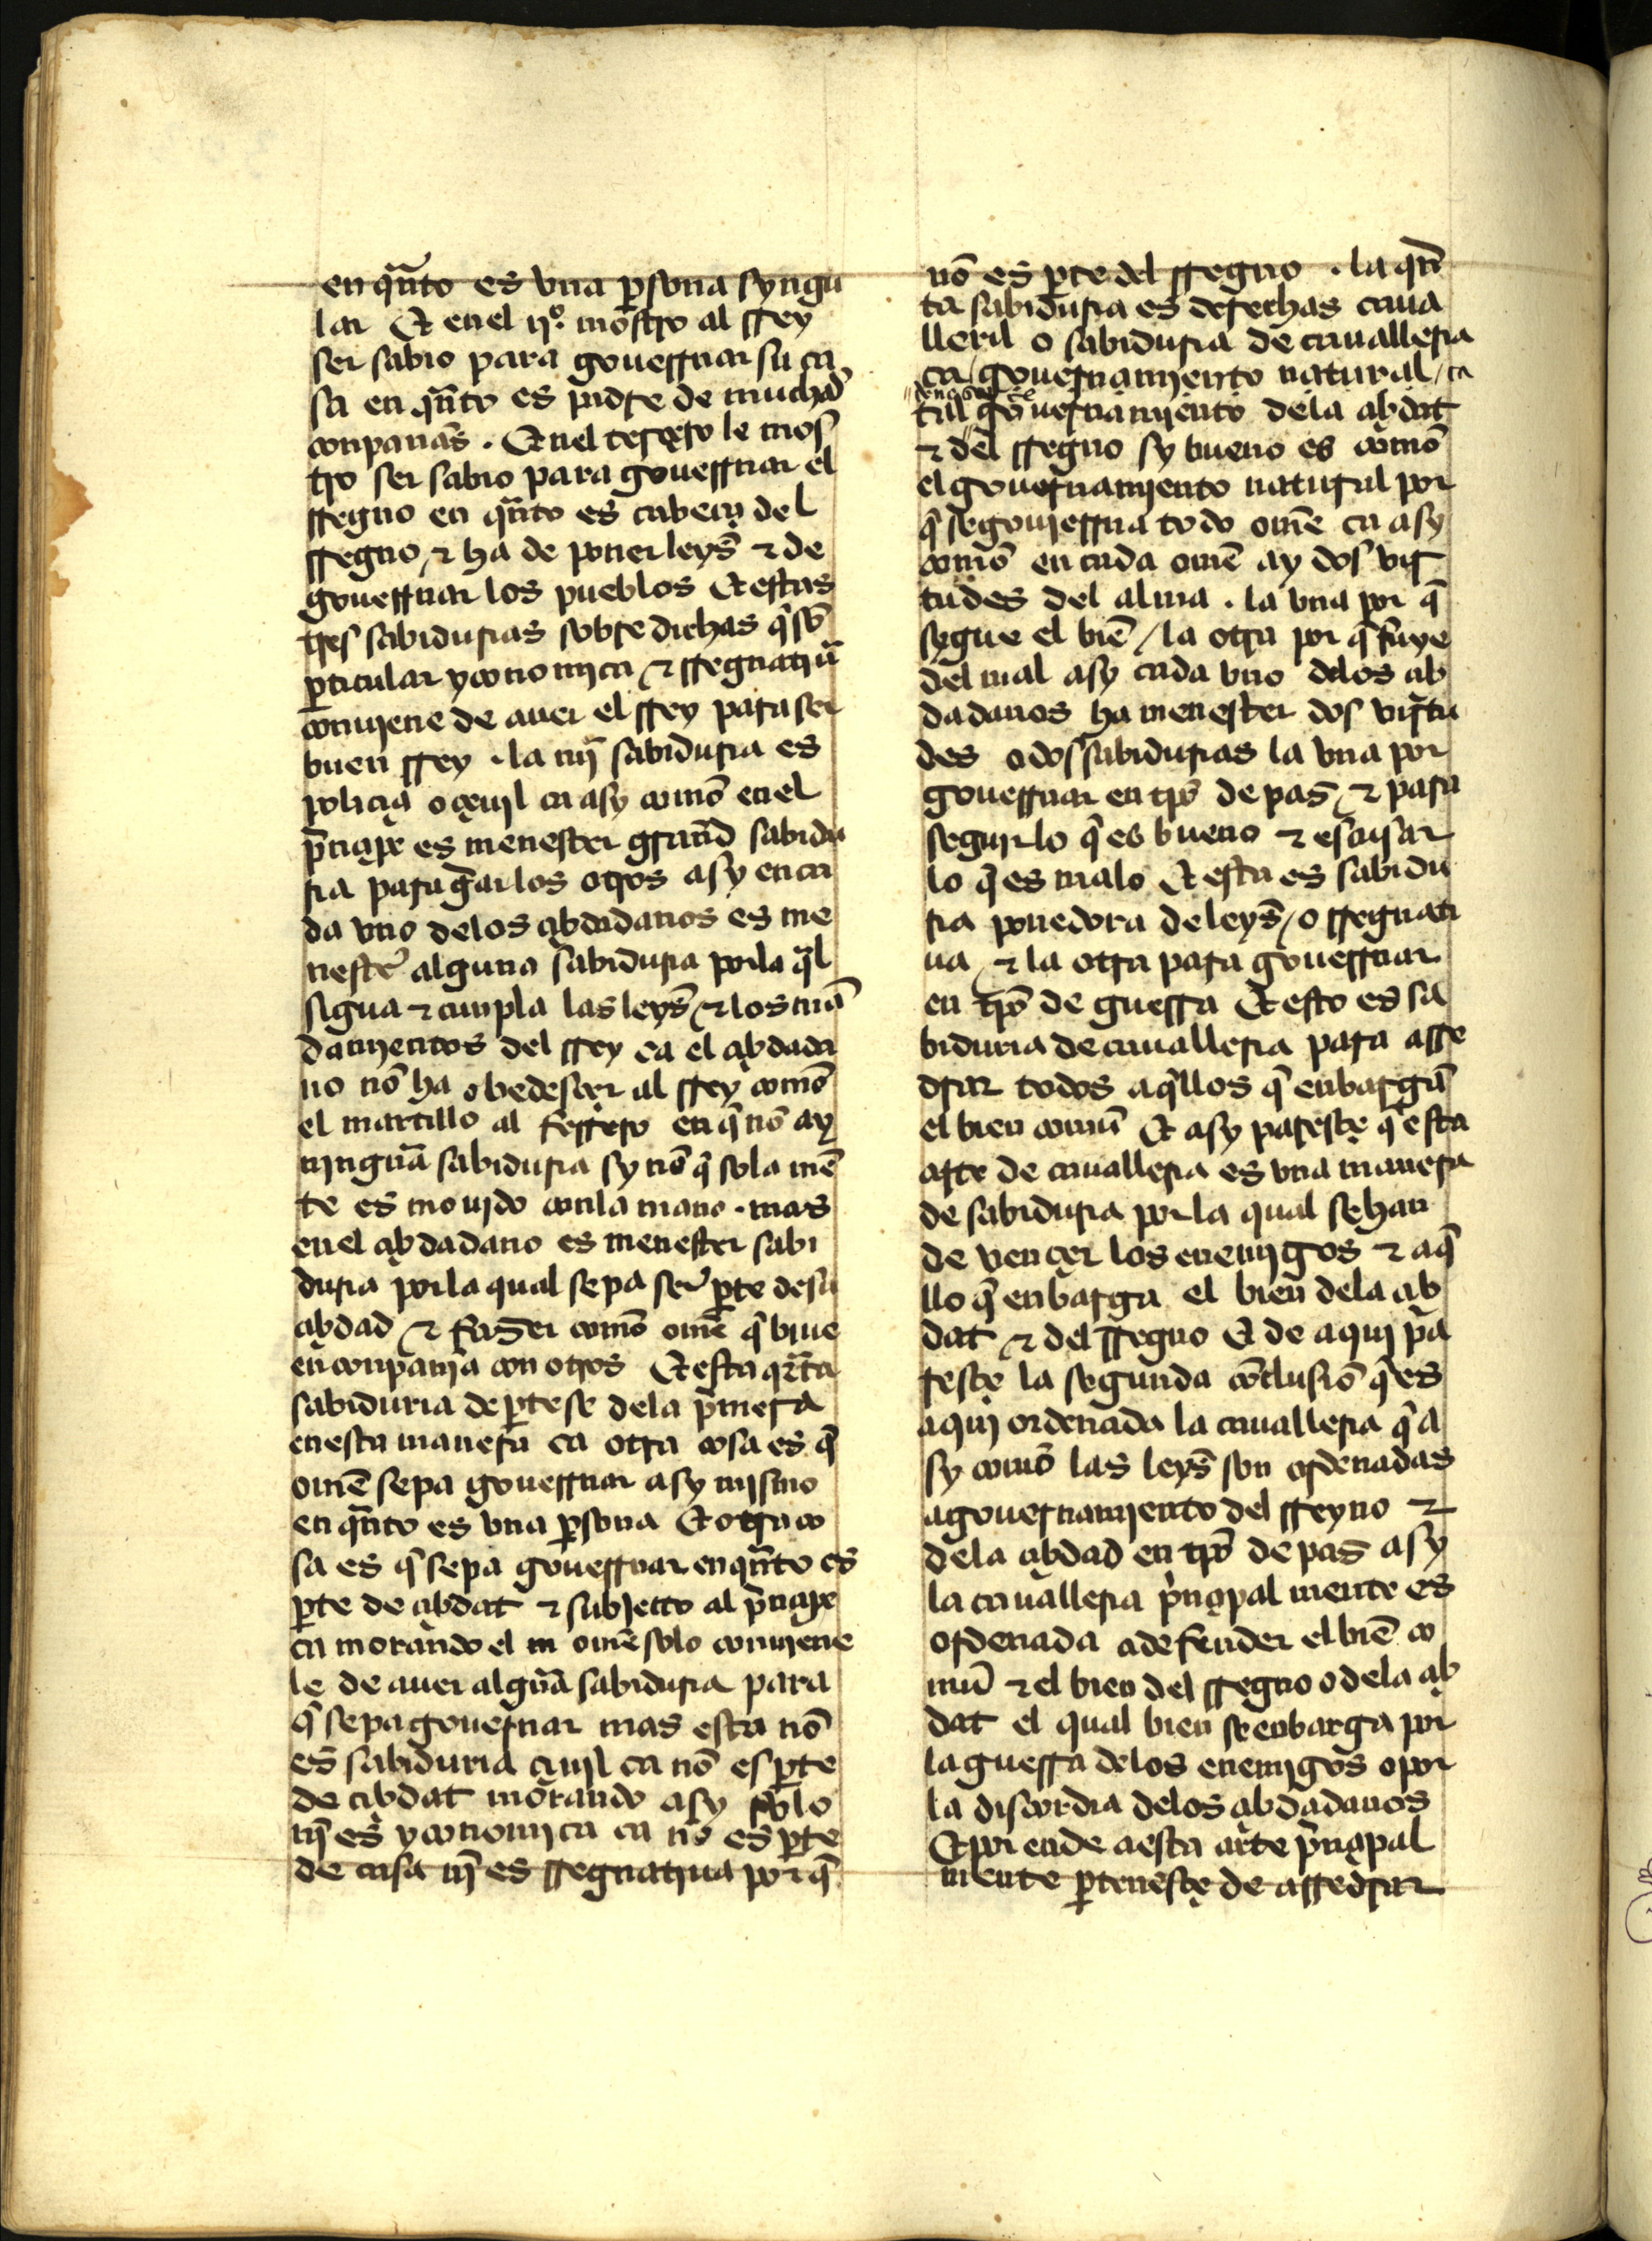 en qñto es vna ꝑsona syngu
lar Et en el ijº. mostro al rrey
ser sabio para gouernar su ca
sa en qñto es padre de muchas
conpañas . Et nel terçero le mos
tro ser sabio para gouernar el
rregno en qñto es cabeça del
rregno / ⁊ ha de poner leys̃ ⁊ de
gouernar los pueblos Et estas
tres sabidurias sobre dichas q̃ sõ
ꝑticular yconomica ⁊ rregnatiũa
conuiene de auer el rrey para ser
buen rrey . la iiij sabiduria es
poliçia o çeuil ca asy comõ en el
pͥnçipe es menester grand sabidu
ria para gͣar los otros asy en ca
da vno de los çibdadanos es me
nester alguna sabiduria por la q̃l
sigua ⁊ cunpla las leys̃ / ⁊ los mã
damientos del rrey ca el çibdada
no nõ ha obedesçer al rrey comõ
el martillo al ferrero en q̃ nõ ay
ningũa sabiduria sy nõ q̃ sola mẽ
te es mouido con la mano . mas
en el çibdadano es menester sabi
duria por la qual sepa ser ꝑte de su
çibdad ⁊ fazer comõ omẽ q̃ biue
en conpañia con otros Et esta qrͣta
sabiduria de ꝑtese dela pͥmera
en esta manera ca otra cosa es q̃
omẽ sepa gouernar asy mismo
en qñto es vna ꝑsona Et otra co
sa es q̃ sepa gouernar en qñto es
ꝑte de çibdat ⁊ subjecto al pͥnçipe
ca morando el vn omẽ solo conuiene
le de auer algũa sabiduria para
q̃ sepa gouernar mas esta nõ
es sabiduria çiuil ca nõ es ꝑte
de çibdat morando asy solo
nĩ es yconomica ca nõ es ꝑte
de casa nĩ es rregnatiua por q̃
nõ es ꝑte del rregno . la qñ
ta sabiduria es de fechas caua
lleril o sabiduria de caualleria
ca / gouernamiento natural / ca
tal gouernamiento dela çibdat
⁊ del rregno sy bueno es comõ
el gouernamiento natural por
q̃ se gouierna todo omẽ ca asy
comõ en cada omẽ ay dos vir
tudes del alma . la vna por q̃
sygue el biẽ / la otra por q̃ fuye
del mal asy cada vno delos çib
dadanos ha menester dos virtu
des o dos sabidurias la vna por
gouernar en tpõ de paz ⁊ para
seguir lo q̃ es bueno ⁊ escusar
lo q̃ es malo Et esta es sabidu
ria ponedora de leys̃ / o rregnati
ua / ⁊ la otra para gouernar
en tpõ de guerra Et esto es sa
biduria de caualleria para arre
drar todos aq̃llos q̃ enbargã
el bien comũ Et asy paresçe q̃ esta
arte de caualleria es vna manera
de sabiduria por la qual se han
de vençer los enemigos ⁊ aq̃
llo q̃ enbarga el bien dela çib
dat ⁊ del rregno Et de aqui pa
resçe la segunda cõclusiõ q̃ es
aqui ordenada la caualleria q̃ a
sy comõ las leys̃ son ordenadas
a gouernamiento del rreyno ⁊
dela çibdad en tpõ de paz asy
la caualleria pͥnçipal mente es
ordenada a defender el biẽ co
mũ ⁊ el bien del rregno o dela çib
dat el qual bien se enbarga por
la guerra delos enemigos o por
la discordia delos çibdadanos
Et por ende a esta arte pͥnçipal
mente ꝑtenesçe de arredrar